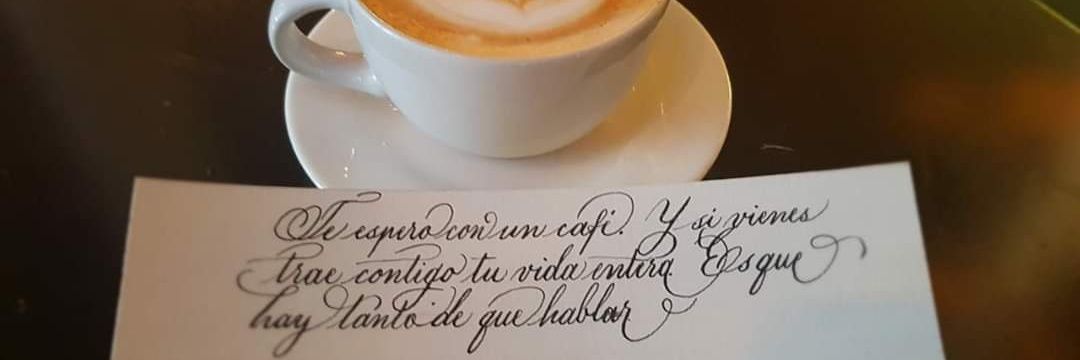 Te espero con un café. Y si vienes
trae contigo tu vida entera. Es que
hay tanto de que hablar